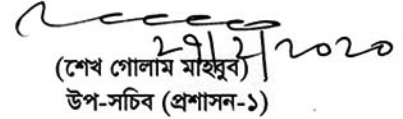 ২৭/২/২০২০
(শেখ গোলাম মাহবুব)
উপ-সচিব (প্রশাসন-১)